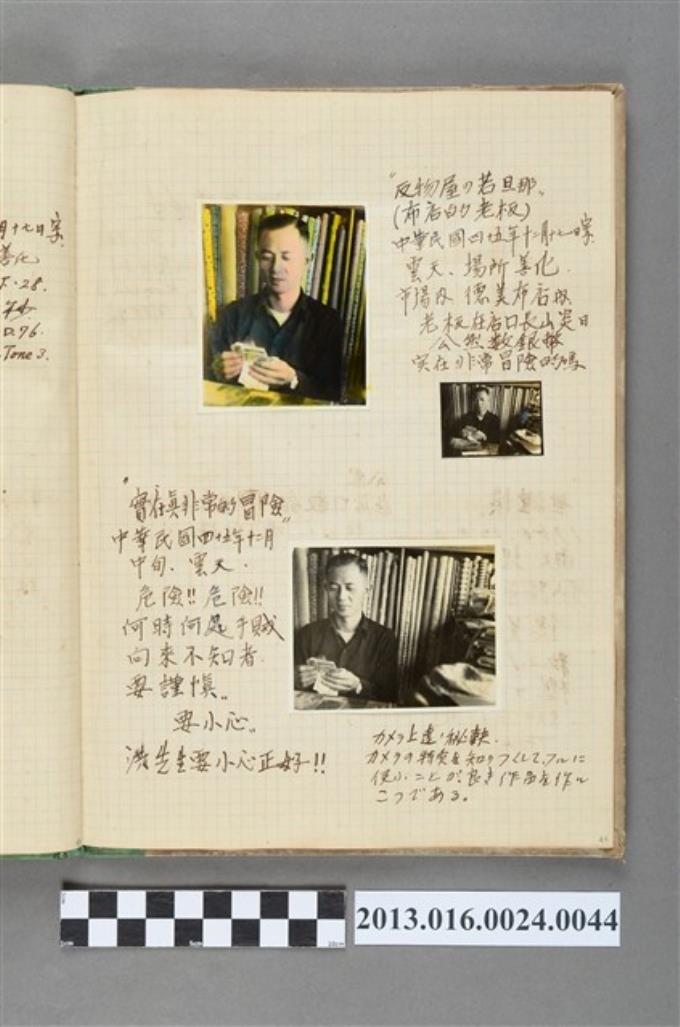 月十七日字
善化
F・28.
D.76.
Tone 3.
"反物屋の若旦那"
(布店的老板)
中華民國四十五年十二月十七日字.
雲天、場所善化.
市場內德美布店故
老板在店口長山炎日
公然數銀撥
实在非常冒險的嗎
"實在真非常的冒險"
中華民國四十五年十二月
中旬、雲天.
危險!! 危險!!
何時何處手賊
向來不知者.
要謹慎"
要小心"
洪先生要小心正好!!
カメラ上達ノ秘訣.
カメラの特質を知りつくして、フルに
使ふことが良き作品を作ル
こつである。
5cm
10cm
2013.016.0024.0044